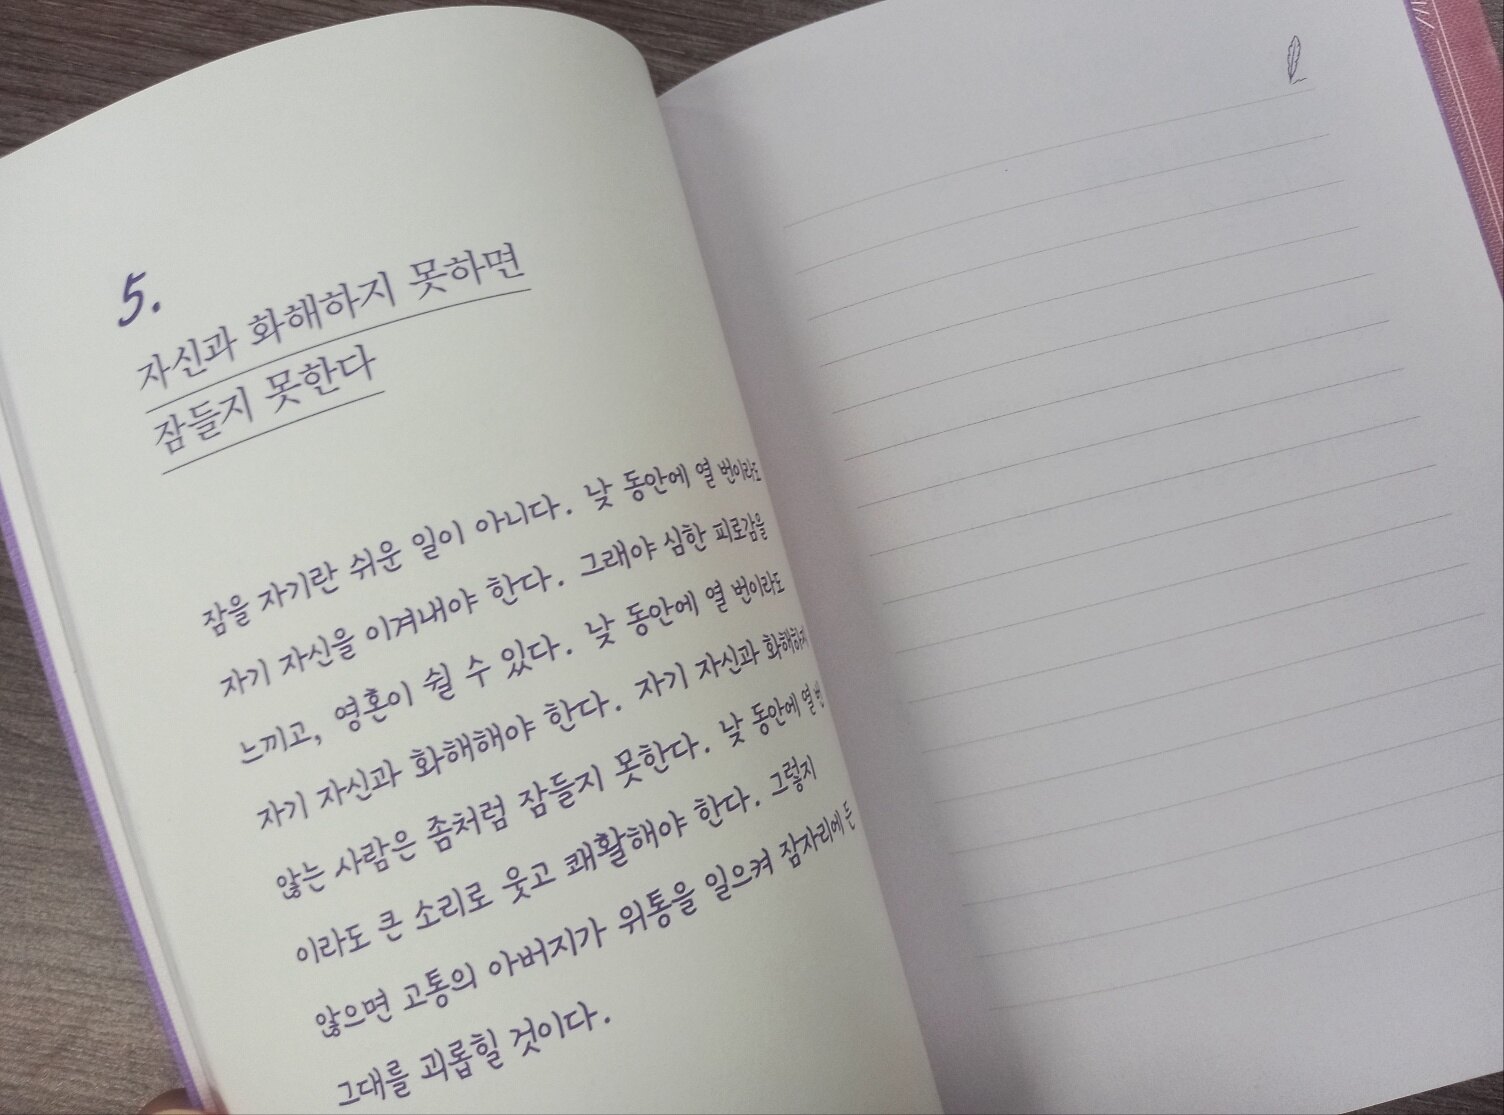 5.
자신과 화해하지 못하면
잠들지 못한다
잠을 자기란 쉬운 일이 아니다. 낮 동안에 열 번이라도
자기 자신을 이겨내야 한다. 그래야 심한 피로감을
느끼고, 영혼이 쉴 수 있다. 낮 동안에 열 번이라도
자기 자신과 화해해야 한다. 자기 자신과 화해하지
않는 사람은 좀처럼 잠들지 못한다. 낮 동안에 열 번
이라도 큰 소리로 웃고 쾌활해야 한다. 그렇지
않으면 고통의 아버지가 위통을 일으켜 잠자리에 든
그대를 괴롭힐 것이다.